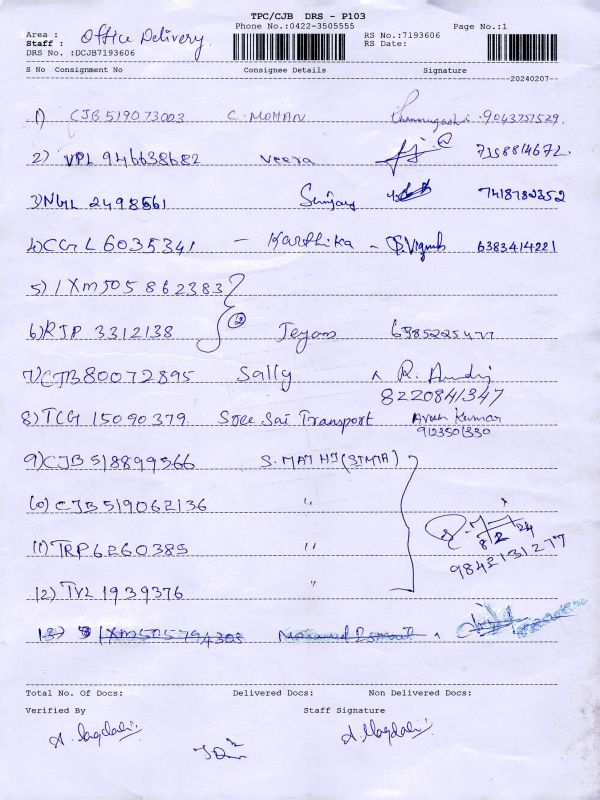 TPC/CJB DRS - P103
Phone No.:0422-3505555
Page No.:1
Area : Office Delivery
Staff :
RS No.:7193606
RS Date:
DRS No. :DCJB7193606
S No Consignment No Consignee Details Signature
20240207
1) CJB519073003 C. MOHAN
2) VPL 946638682 Veera 7358814672.
3) NGL 2498561 7418792352
4) CGL 6035341 - Karthika - 6383414221
5) 1XM505862383
6) RJP 3312138 (2) Jeyam
7) CJB80072895 Sally R.
8220841347
8) TCG 15090379. Sree Sai Transport Arun Kumar
9) CJB518899566 S. MATHI (SIMTA)
10) CJB519062136 "
8/2/24
11) TRP6260389 "
9842131277
12) TVL 1939376 "
13) 1XM505794308
Total No. Of Docs: Delivered Docs: Non Delivered Docs:
Verified By Staff Signature